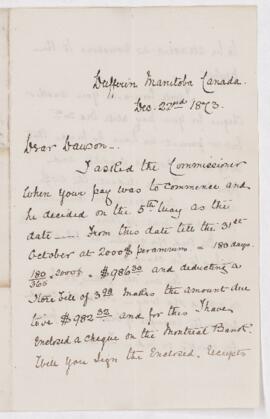 Dufferin Manitoba Canada.
Dec. 22nd 1873.
Dear Dawson _
I asked the Commissioner
when your pay was to commence and
he decided on the 5th May as the
date _ From this date till the 31st
October at 2000$ per annum = 180 days.
180/365 × 2000$ = $986.30 and deducting a
Store bill of 3.98 makes the amount due
to be $982.32 and for this I have
enclosed a cheque on the Montreal Bank.
Will you sign the Enclosed Receipts